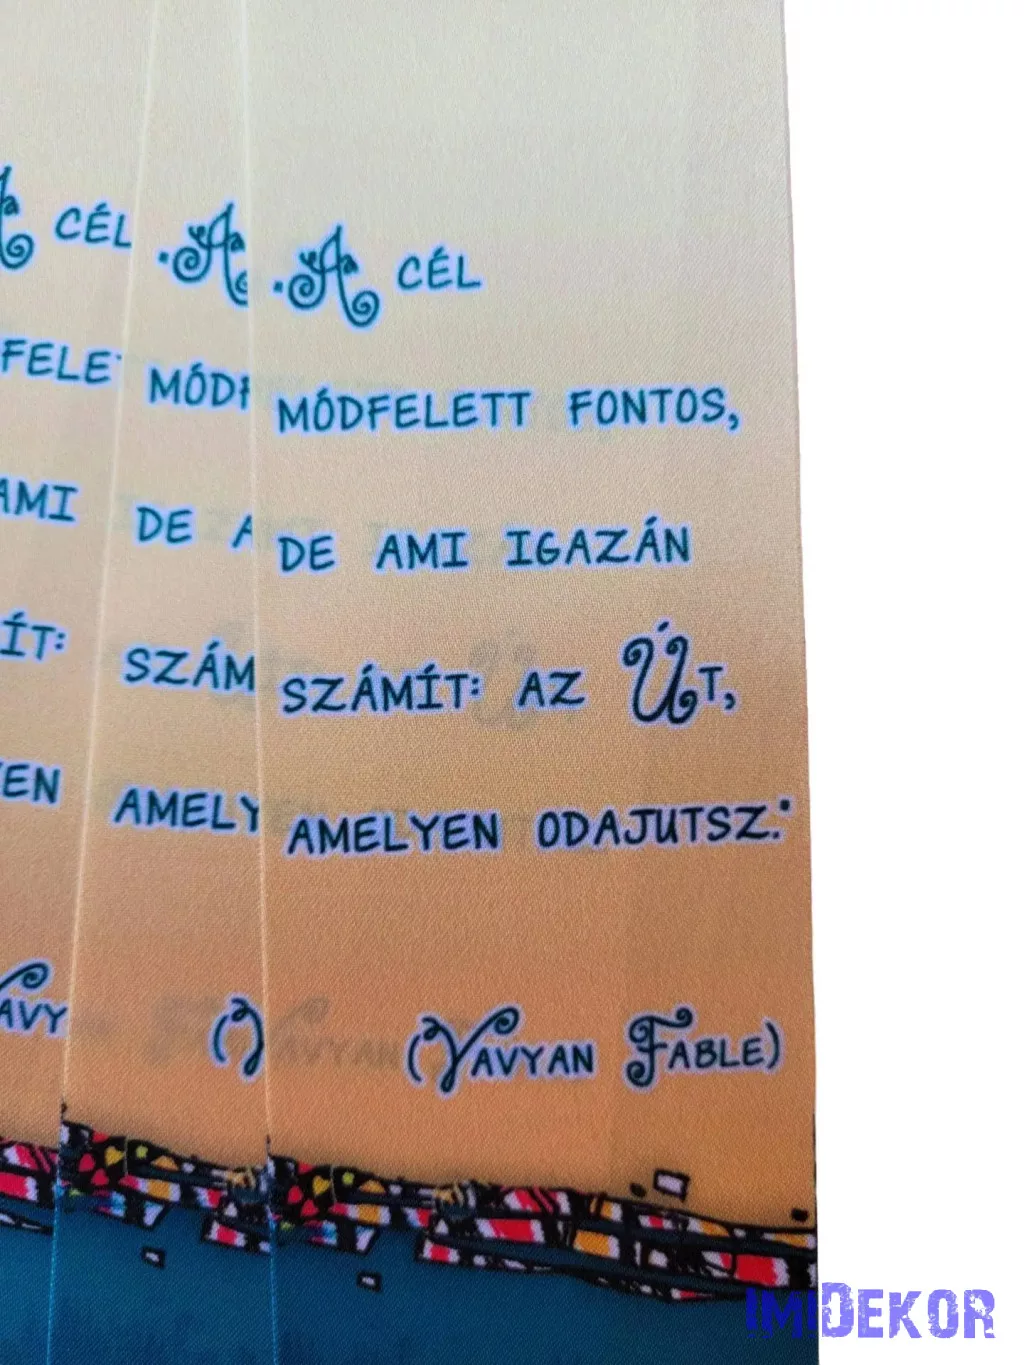 "A CÉL
MÓDFELETT FONTOS,
DE AMI IGAZÁN
SZÁMÍT: AZ ÚT,
AMELYEN ODAJUTSZ."
(VAVYAN FABLE)
A CÉL
"A
FELET
MÓDF
AMI
DE A
ÍT:
SZÁM
YEN
AMELY
VAVY
(V
IMIDEKOR